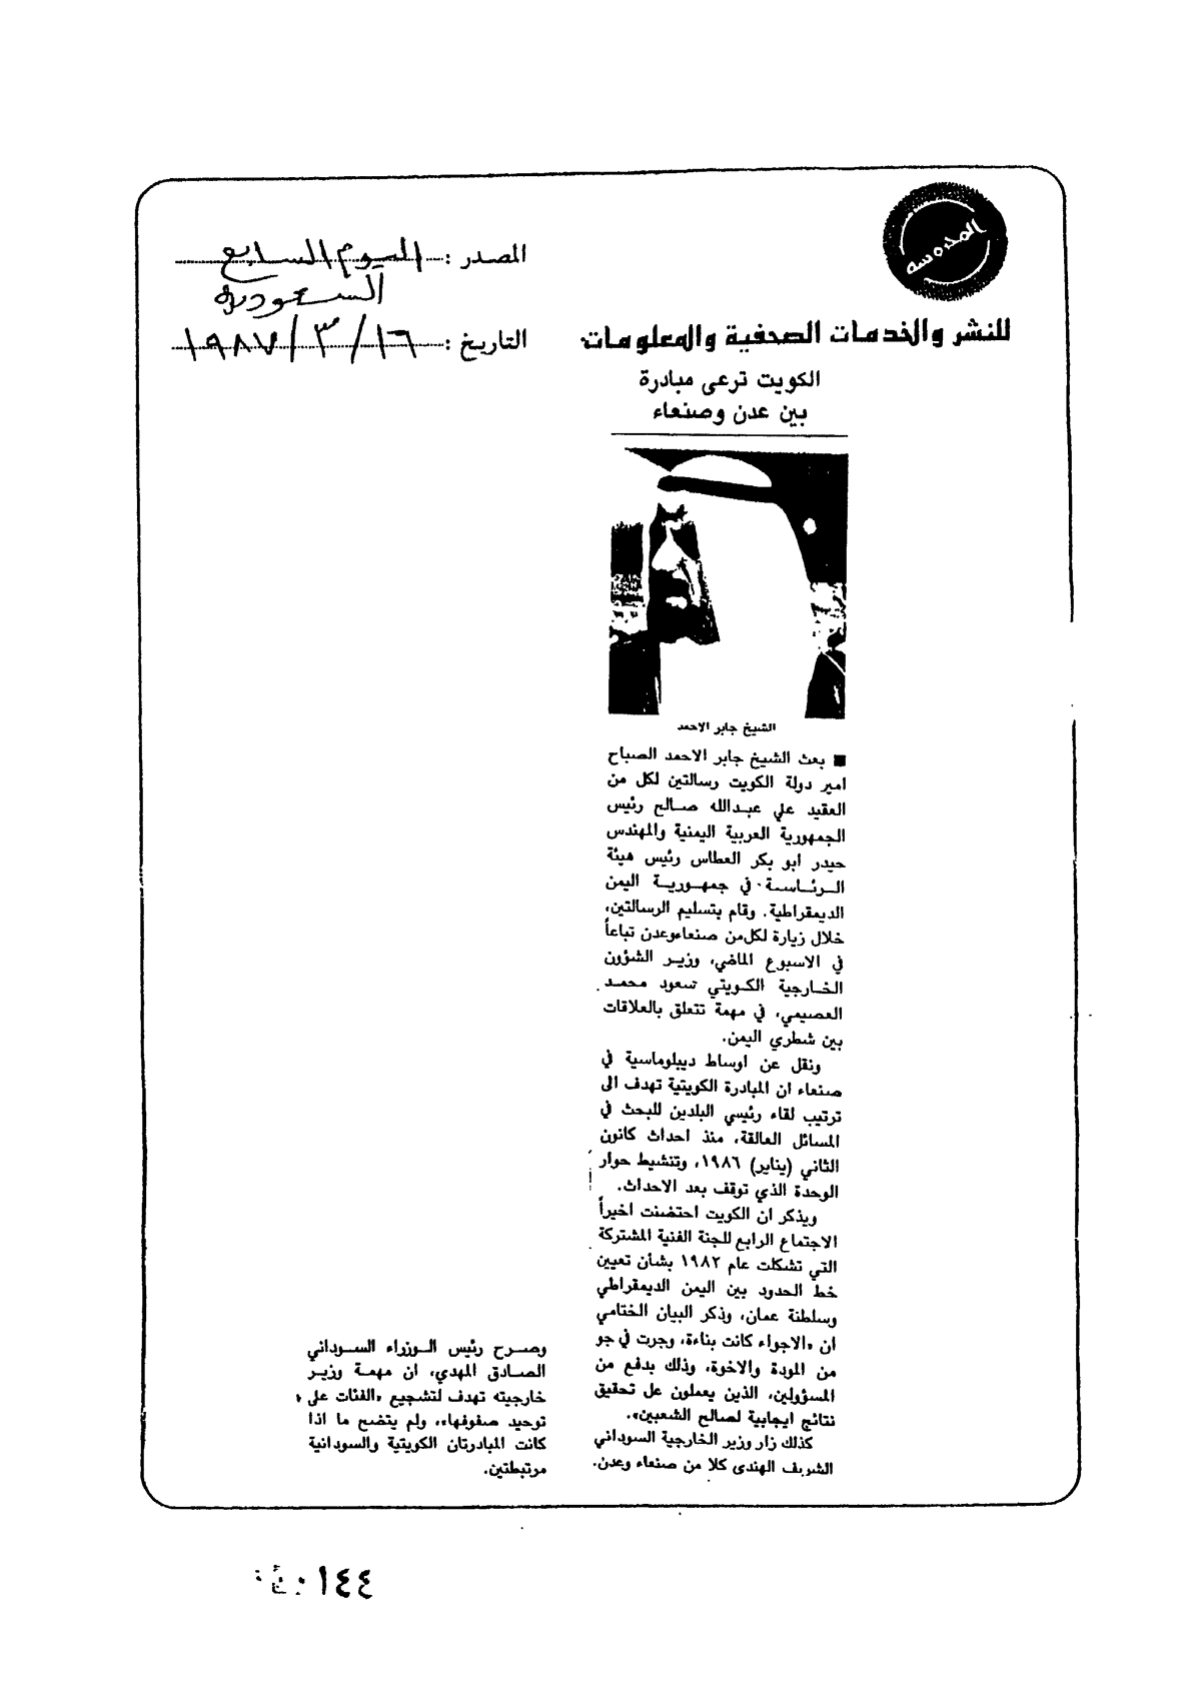 المدرسه
للنشر والخدمات الصحفية والمعلومات
المصدر : اليوم السابع
السعودية
التاريخ : ١٦ / ٣ / ١٩٨٧
الكويت ترعى مبادرة
بين عدن وصنعاء
الشيخ جابر الاحمد
■ بعث الشيخ جابر الاحمد الصباح
امير دولة الكويت رسالتين لكل من
العقيد علي عبدالله صالح رئيس
الجمهورية العربية اليمنية والمهندس
حيدر ابو بكر العطاس رئيس هيئة
الرئاسة في جمهورية اليمن
الديمقراطية. وقام بتسليم الرسالتين،
خلال زيارة لكل من صنعاء وعدن تباعاً
في الاسبوع الماضي، وزير الشؤون
الخارجية الكويتي سعود محمد
العصيمي، في مهمة تتعلق بالعلاقات
بين شطري اليمن.
ونقل عن اوساط ديبلوماسية في
صنعاء ان المبادرة الكويتية تهدف الى
ترتيب لقاء رئيسي البلدين للبحث في
المسائل العالقة، منذ احداث كانون
الثاني (يناير) ١٩٨٦، وتنشيط حوار
الوحدة الذي توقف بعد الاحداث.
ويذكر ان الكويت احتضنت اخيراً
الاجتماع الرابع للجنة الفنية المشتركة
التي تشكلت عام ١٩٨٢ بشأن تعيين
خط الحدود بين اليمن الديمقراطي
وسلطنة عمان، وذكر البيان الختامي
ان «الاجواء كانت بناءة، وجرت في جو
من المودة والاخوة، وذلك بدفع من
المسؤولين، الذين يعملون على تحقيق
نتائج ايجابية لصالح الشعبين».
كذلك زار وزير الخارجية السوداني
الشريف الهندي كلا من صنعاء وعدن.
وصرح رئيس الوزراء السوداني
الصادق المهدي، ان مهمة وزير
خارجيته تهدف لتشجيع «الفئات على
توحيد صفوفها»، ولم يتضح ما اذا
كانت المبادرتان الكويتية والسودانية
مرتبطتين.
٠١٤٤